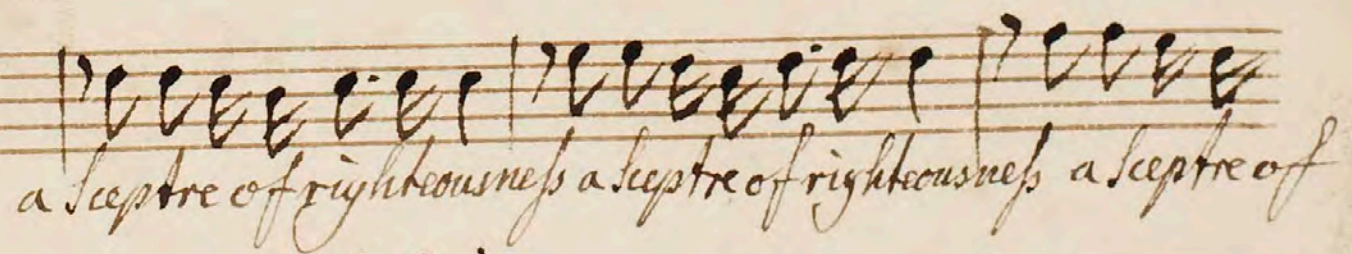 a sceptre of righteousneſs a sceptre of righteousneſs a sceptre of